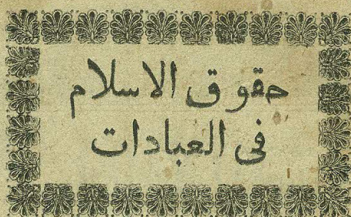 حقوق الاسلام
فى العبادات